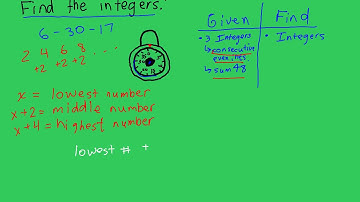 Find the integers.
6 - 30 - 17
2 4 6 8 ...
+2 +2 +2
x = lowest number
x+2 = middle number
x+4 = highest number
lowest # +
Given
• 3 Integers
↳ consecutive
even ints.
↳ sum 48
Find
• Integers